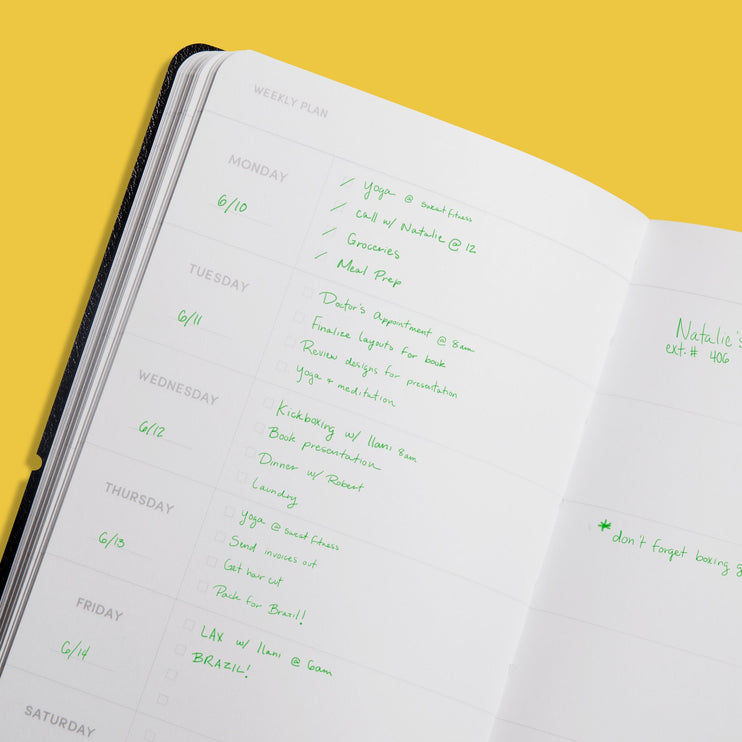 WEEKLY PLAN
MONDAY
6/10
Yoga @ sweat fitness
call w/ Natalie @ 12
Groceries
Meal Prep
TUESDAY
6/11
Doctor's Appointment @ 8am
Finalize layouts for book
Review designs for presentation
Yoga + meditation
WEDNESDAY
6/12
Kickboxing w/ Ilani 8am
Book presentation
Dinner w/ Robert
Laundry
THURSDAY
6/13
Yoga @ sweat fitness
Send invoices out
Get hair cut
Pack for Brazil!
FRIDAY
6/14
LAX w/ Ilani @ 6am
BRAZIL!
SATURDAY
Natalie's
ext. # 406
*don't forget boxing g